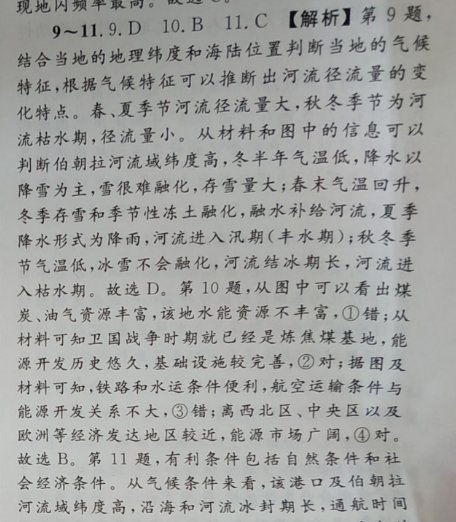 现地闪频率最高。故选C。
9～11. 9. D 10. B 11. C 【解析】第 9 题,
结合当地的地理纬度和海陆位置判断当地的气候
特征,根据气候特征可以推断出河流径流量的变
化特点。春、夏季节河流径流量大,秋冬季节为河
流枯水期,径流量小。从材料和图中的信息可以
判断伯朝拉河流域纬度高,冬半年气温低,降水以
降雪为主,雪很难融化,存雪量大;春末气温回升,
冬季存雪和季节性冻土融化,融水补给河流,夏季
降水形式为降雨,河流进入汛期(丰水期);秋冬季
节气温低,冰雪不会融化,河流结冰期长,河流进
入枯水期。故选 D。第 10 题,从图中可以看出煤
炭、油气资源丰富,该地水能资源不丰富,①错;从
材料可知卫国战争时期就已经是炼焦煤基地,能
源开发历史悠久,基础设施较完善,②对;据图及
材料可知,铁路和水运条件便利,航空运输条件与
能源开发关系不大,③错;离西北区、中央区以及
欧洲等经济发达地区较近,能源市场广阔,④对。
故选 B。第 11 题,有利条件包括自然条件和社
会经济条件。从气候条件来看,该港口及伯朝拉
河流域纬度高,沿海和河流冰封期长,通航时间